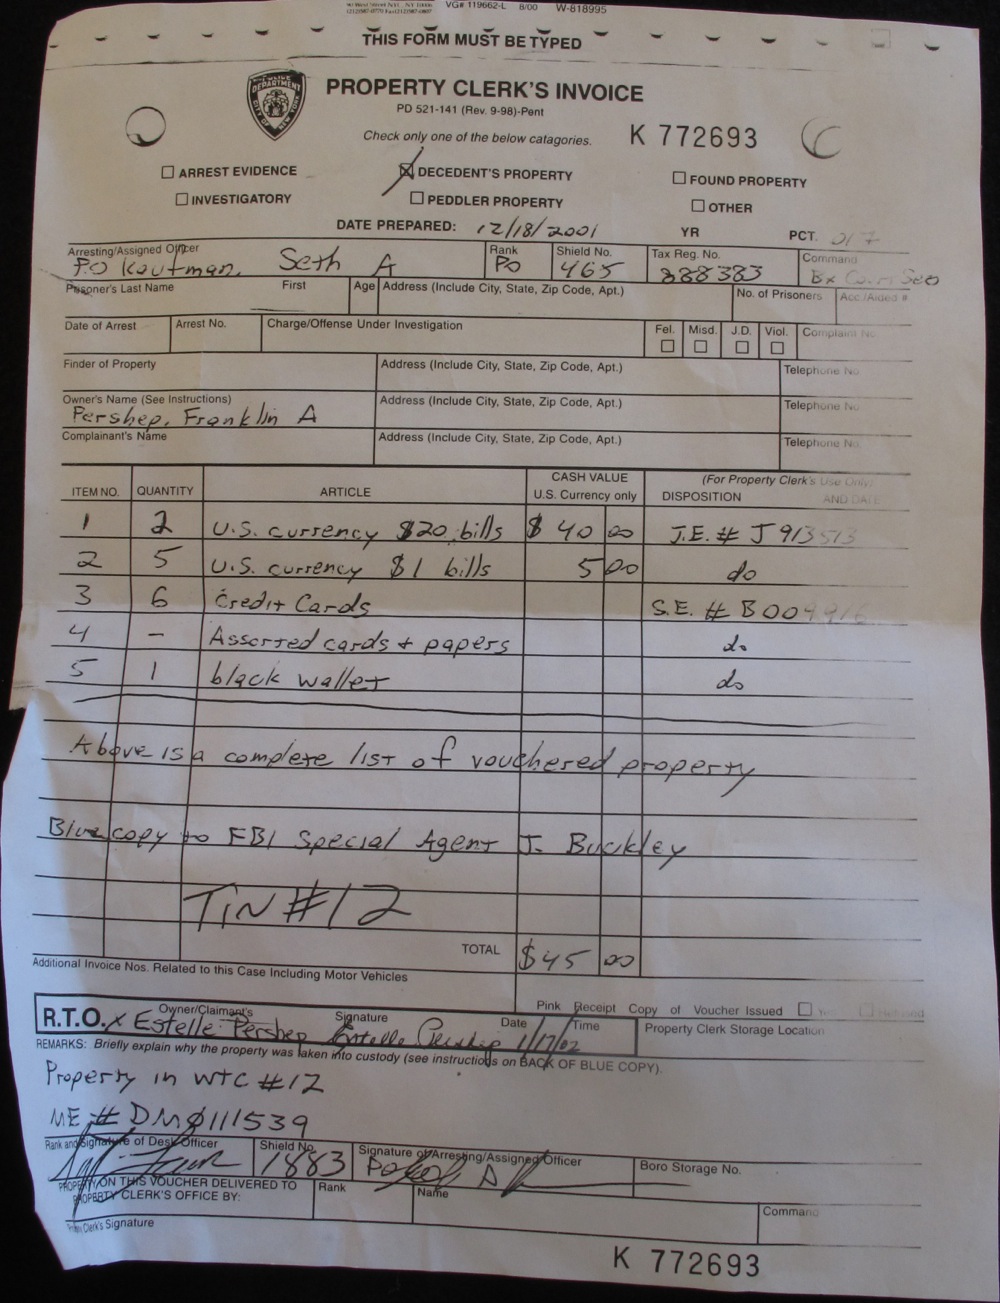 VG# 119662-L 8/00 W-818995
THIS FORM MUST BE TYPED
POLICE DEPARTMENT CITY OF NEW YORK
PROPERTY CLERK'S INVOICE
PD 521-141 (Rev. 9-98)-Pent
Check only one of the below catagories. K 772693
ARREST EVIDENCE DECEDENT'S PROPERTY FOUND PROPERTY
INVESTIGATORY PEDDLER PROPERTY OTHER
DATE PREPARED: 12/18/2001 YR PCT. 017
Arresting/Assigned Officer Rank Shield No. Tax Reg. No. Command
P.O Kaufman, Seth A PO 465 888383 Bx
Prisoner's Last Name First Age Address (Include City, State, Zip Code, Apt.) No. of Prisoners Acc./Aided #
Date of Arrest Arrest No. Charge/Offense Under Investigation Fel. Misd. J.D. Viol. Complaint No.
Finder of Property Address (Include City, State, Zip Code, Apt.) Telephone No.
Owner's Name (See Instructions) Address (Include City, State, Zip Code, Apt.) Telephone No.
Pershep, Franklin A
Complainant's Name Address (Include City, State, Zip Code, Apt.) Telephone No.
CASH VALUE (For Property Clerk's Use Only)
ITEM NO. QUANTITY ARTICLE U.S. Currency only DISPOSITION AND DATE
1 2 U.S. currency $20 bills $ 40 00 J.E. # J 913513
2 5 U.S. currency $1 bills 5 00 do
3 6 Credit Cards S.E. # B004916
4 - Assorted cards + papers do
5 1 black wallet do
Above is a complete list of vouchered property
Blue copy to FBI Special Agent J. Buckley
TIN #12
TOTAL $45 00
Additional Invoice Nos. Related to this Case Including Motor Vehicles
Pink Receipt Copy of Voucher Issued Yes Refused
R.T.O. Owner/Claimant's Signature Date Time Property Clerk Storage Location
x Estelle Pershep Estelle Pershep 1/17/02
REMARKS: Briefly explain why the property was taken into custody (see instructions on BACK OF BLUE COPY).
Property in WTC #12
ME # DM0111539
Rank and Signature of Desk Officer Shield No. Signature of Arresting/Assigned Officer Boro Storage No.
1883 PO
PROPERTY ON THIS VOUCHER DELIVERED TO Rank Name Command
PROPERTY CLERK'S OFFICE BY:
Clerk's Signature
K 772693